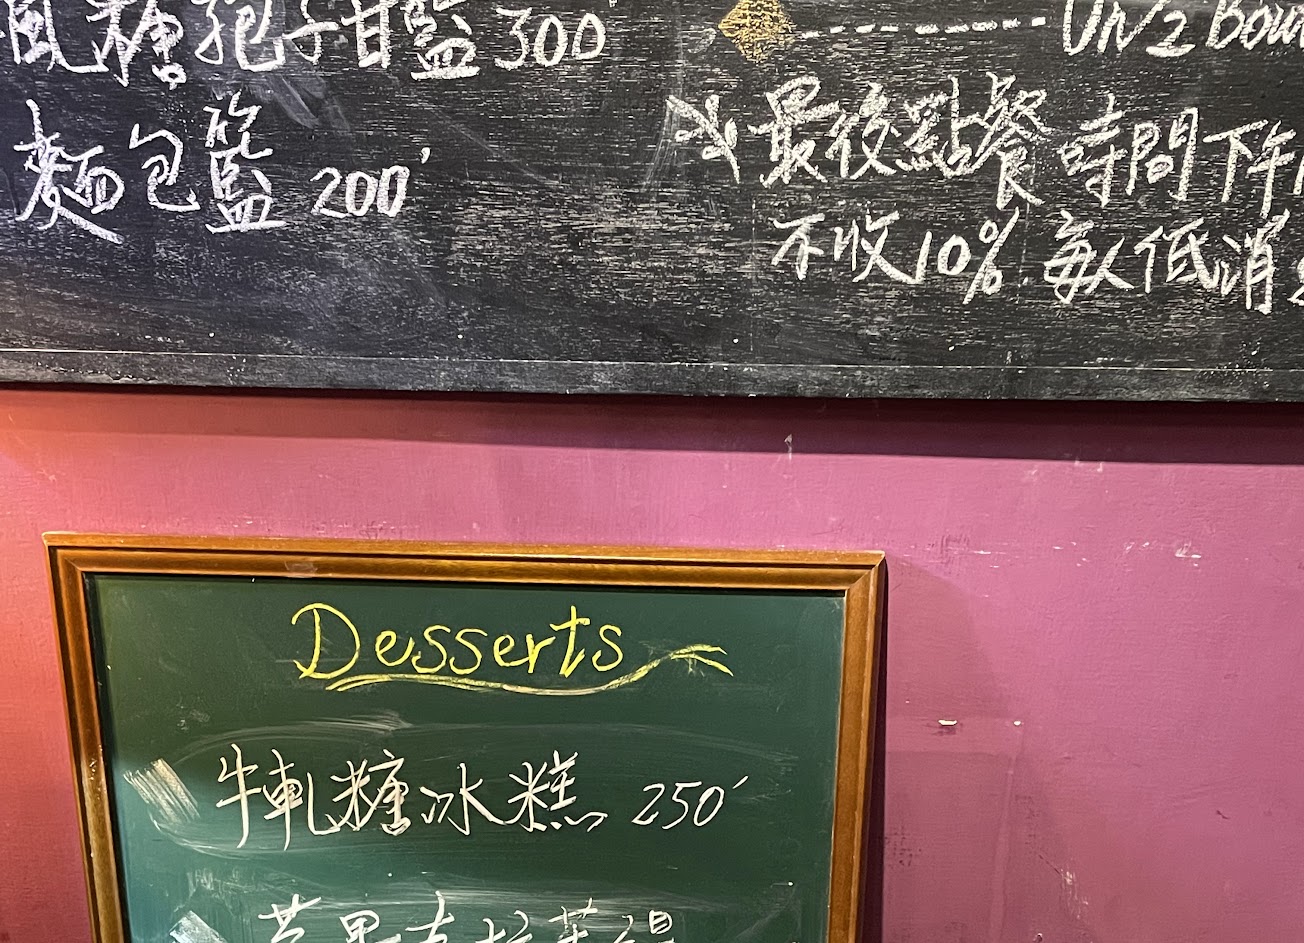 楓糖孢子甘藍 300
麵包籃 200'
※最後點餐時間下午
不收10% 每人低消
Desserts
牛軋糖冰糕 250'